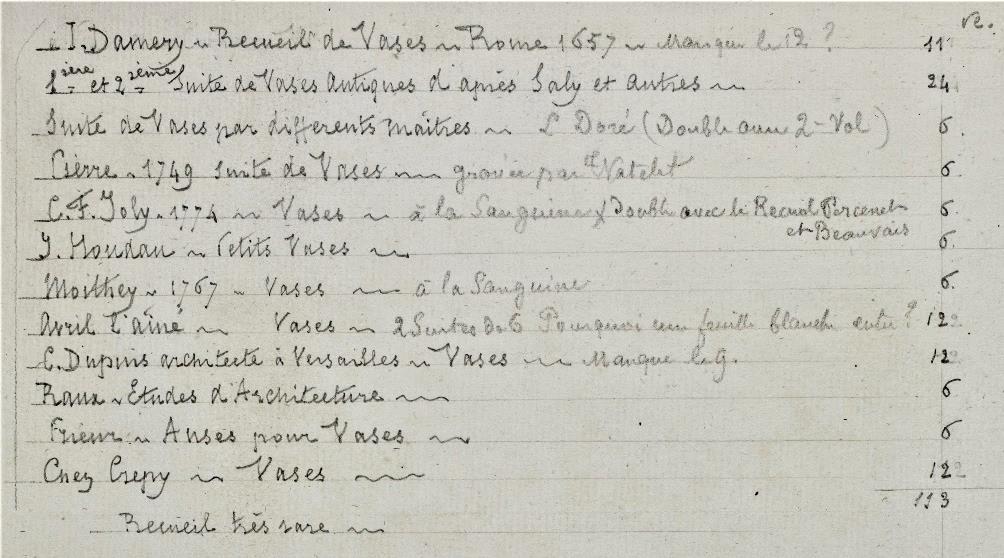 ve.
I. Damery Recueil de Vases Rome 1657 Manque le 12 ? 11
1ère et 2ième Suite de Vases Antiques d'après Saly et autres 24
Suite de Vases par differents maîtres L Doré (Double avec 2 Vol) 6.
Pierre 1749 Suite de Vases gravée par Natelet 6.
C. F. Joly. 1774 Vases à la Sanguine Double avec le Recueil Percenet 6.
et Beauvais
J. Houdan Petits Vases 6.
Moithey 1767 Vases à la Sanguine 6.
Avril l'aîné Vases 2 Suites de 6 Pourquoi une feuille blanche entre ? 12
C. Dupuis architecte à Versailles Vases Manque le 9. 12
Raux Etudes d'Architecture 6
Prieur Anses pour Vases 6
Chez Crepy Vases 12
113
Recueil très rare